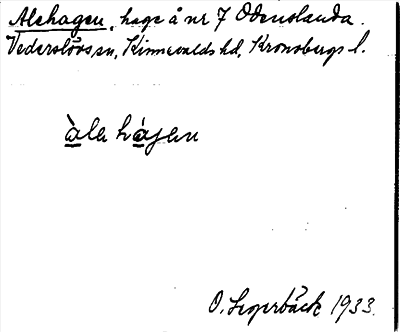 Alehagen, hage å nr 7 Odenslanda.
Vederslövs sn, Kinnevalds hd, Kronobergs l.
àla hágen
O. Lagerbäck 1933.